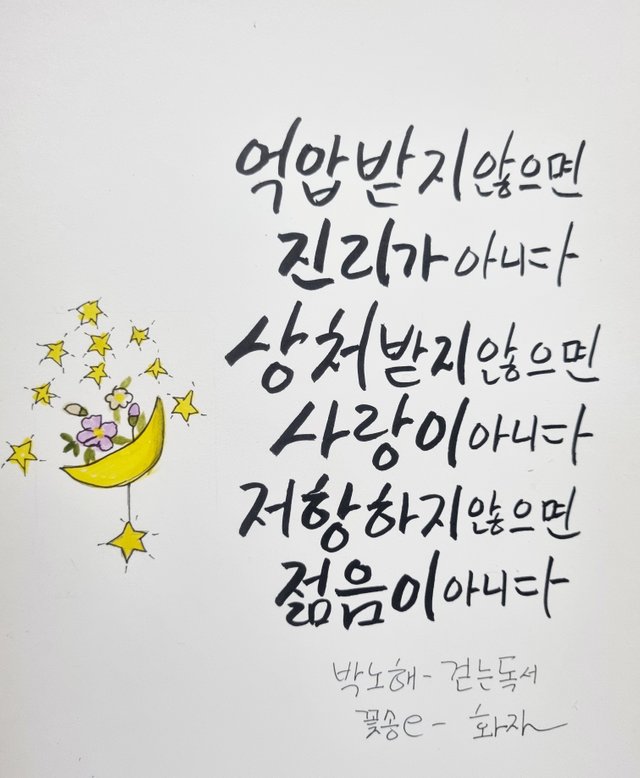 억압받지않으면
진리가 아니다
상처받지않으면
사랑이 아니다
저항하지않으면
젊음이 아니다
박노해 - 걷는독서
꽃송e - 화자